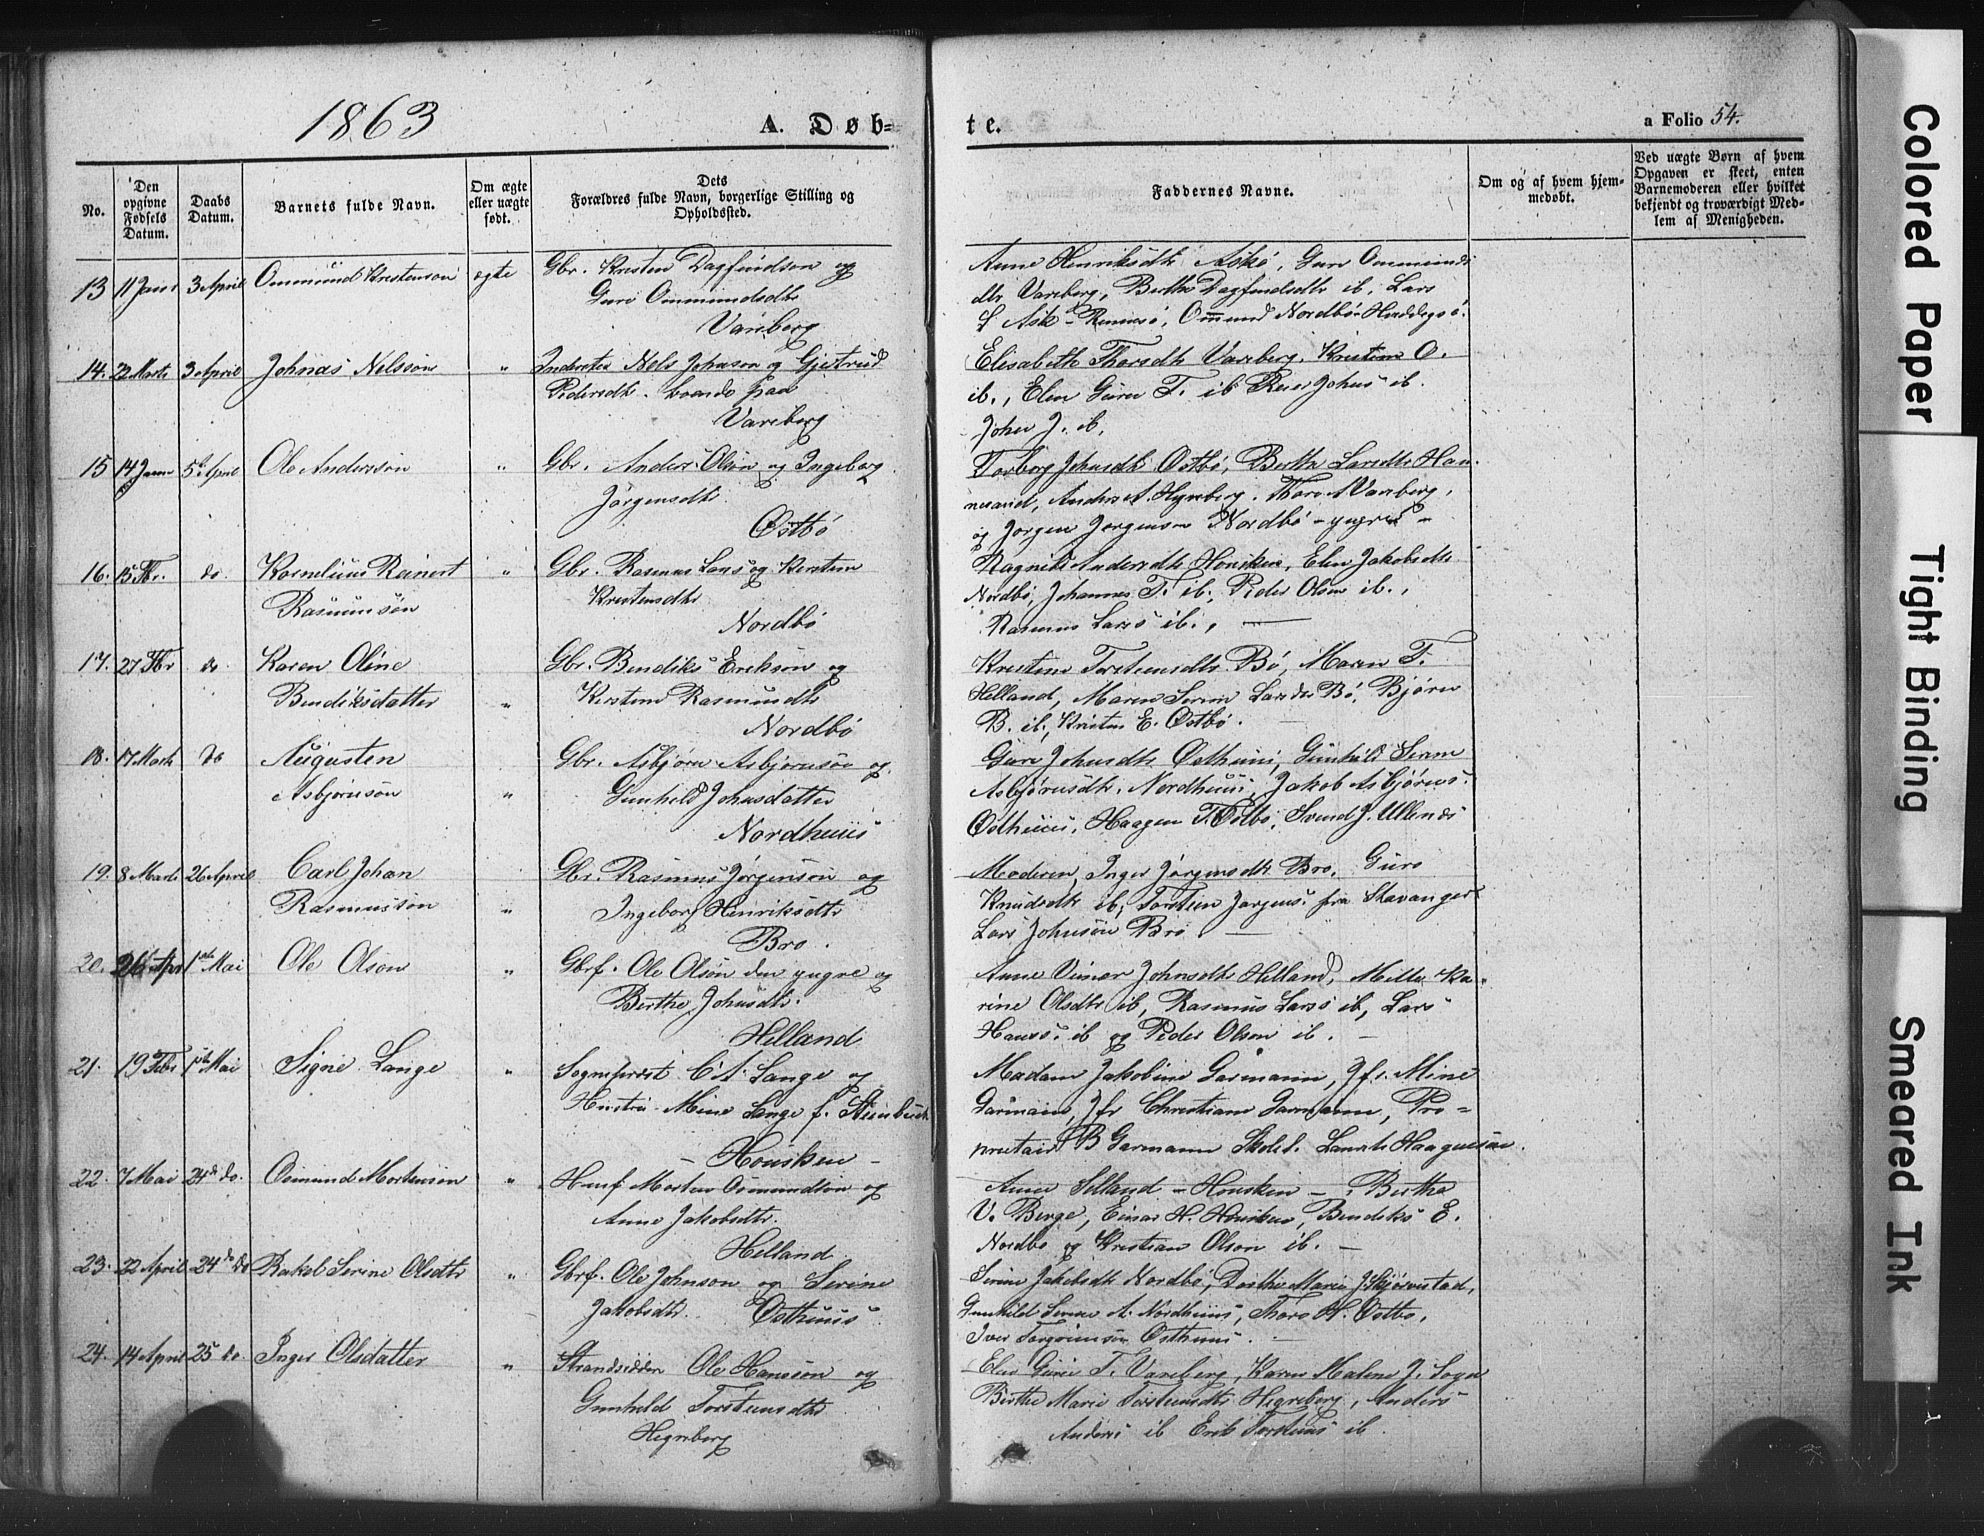 1863
A. Døb=
te.
a Folio 54.
No.
Den opgivne Fødsels Datum.
Daabs Datum.
Barnets fulde Navn.
Om ægte eller uægte født.
Dets Forældres fulde Navn, borgerlige Stilling og Opholdssted.
Faddernes Navne.
Om og af hvem hjem-medøbt.
Ved uægte Børn af hvem Opgaven er skeet, enten Barnemoderen eller hvilket bekjendt og troværdigt Med-lem af Menigheden.
13 11 Janr 3 April Ommund Kristenson ægte Gbr. Kristen Dagfindson og
Guri Ommundsdtr
Vareberg
Anne Henriksdtr Askø, Guri Ommunds
dtr Vareberg, Berthe Dagfindsdtr ib, Lars
Ask Rennesø, Ommund Nordbø
14. 22 Marts 3 April Johnas Nelsson " Inderste Nels Johnson og Gjertrud
Pedersdtr. boende paa
Vareberg
Elisabeth Thorsdtr Vareberg, Kristine O.
ib., Elen Guri T. ib Johns ib.
John J. ib.
15 14 Janr 5te April Ole Anderson " Gbr. Anders Olson og Ingeborg
Jørgensdtr
Østbø
Torborg Johnsdtr Østbø, Berthe Larsdtr Han-
nesand, Anders A. Hegreberg, Thore Vareberg,
og Jørgen Jørgensen Nordbø - yngre -
16. 15 Fbr. do. Kornelius Reinert " Gbr. Rasmus Lars og Kirsten
Rasmusson
Kristensdtr
Nordbø
Ragnild Andersdtr Housken, Elen Jakobsdtr
Nordbø, Johannes T. ib., Peder Olsen ib.,
Rasmus Larss ib.,
17. 27 Fbr do Karen Oline Gbr. Bendiks Erikson og
Bendiksdatter " Kirstine Rasmusdtr
Nordbø
Kristine Torsteinsdtr Bø, Maren T.
Helland, Maren Serine Larsdtr Bø, Bjørn
B. ib, Kristen E. Østbø.
18. 17 Marts do Augusten Gbr. Asbjørn Asbjørnson og
Asbjørnsøn " Gunhild Johnsdatter
Nordhuus
Guri Johnsdtr Østhuus, Gunhild Serine
Asbjørnsdtr. Nordhuus, Jakob Asbjørns.
Østhuus, Haagen T. Østbø, Svend J.
19. 8 Marts 26 April Carl Johan Gbr. Rasmus Jørgenson og
Rasmusson " Ingeborg Henriksdtr
Bro.
Moderen, Inger Jørgensdtr Bro, Guro
Knudsdtr ib, Torsten Jørgens. fra Stavanger
Lars Johnson Bro
20. 26 Apr 1ste Mai Ole Olson " Gbrf. Ole Olson den yngre og
Berthe Johnsdtr.
Helland
Anne Johnsdtr Helland, Mette Ka-
rine Olsdtr ib, Rasmus Larss ib, Lars
Hanss. ib og Peder Olson ib.
21. 19 Febr 1ste Mai Signe Lange " Sogneprest C A. Lange og
Hustru Mine Lange f.
- Housken -
Madam Jakobine Garmann, Jfr. Mine
Garmann, Jfr Christiane Garmann, Pro-
prietair B Garmann Skolel. Haagensen.
22. 7 Mai 24de do. Osmund Mortenson " Huusf Morten Osmundson og
Anne Jakobsdtr.
Helland
Anne Helland - Housken -, Berthe
V. Berge, Einar H. Housken, Bendiks E.
Nordbø og Kristian Olson ib. -
23. 22 April 24de do Rakel Serine Olsdtr " Gbrf. Ole Johnson og Serine
Jakobsdtr. Østhuus
Serine Jakobsdtr Nordbø, Dorthe Marie J. Skjørvestad,
Gunhild Serine A. Nordhuus, Thore H. Østbø,
Iver Torgrimson Østhuus.
24. 14 April 25 do. Inger Olsdatter " Strandsidder Ole Hansson og
Gunhild Torsteinsdtr
Hegreberg
Elen Guri T. Vareberg, Karen Malene J. Sogn
Berthe Marie Torsteinsdtr Hegreberg, Anders
Anders ib Erik Torsteins ib.
Colored Paper
Tight Binding
Smeared Ink